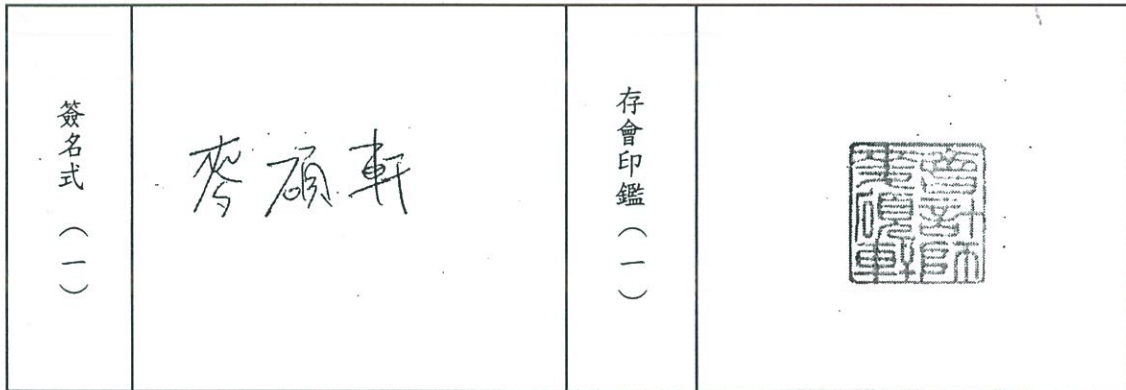 簽名式（一）
麥碩軒
存會印鑑（一）
會計師
碩軒